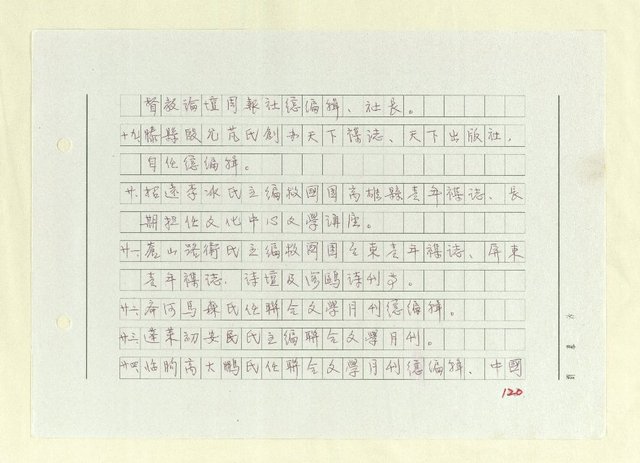 督教論壇周報社總編輯、社長。
十九滕縣殷允芃氏創办天下雜誌、天下出版社,
自任總編輯。
廿.招遠李冰氏主編救國團高雄縣青年雜誌、長
期担任文化中心文學講座。
廿一.崑山路衛氏主編救國團台東青年雜誌、屏東
青年雜誌.詩壇及海鷗詩刊等。
廿二.齊河馬森氏任聯合文學月刊總編輯。
廿三.蓬萊初安民氏主編聯合文學月刊。
廿四.臨朐高大鵬氏任聯合文學月刊總編輯、中國
120